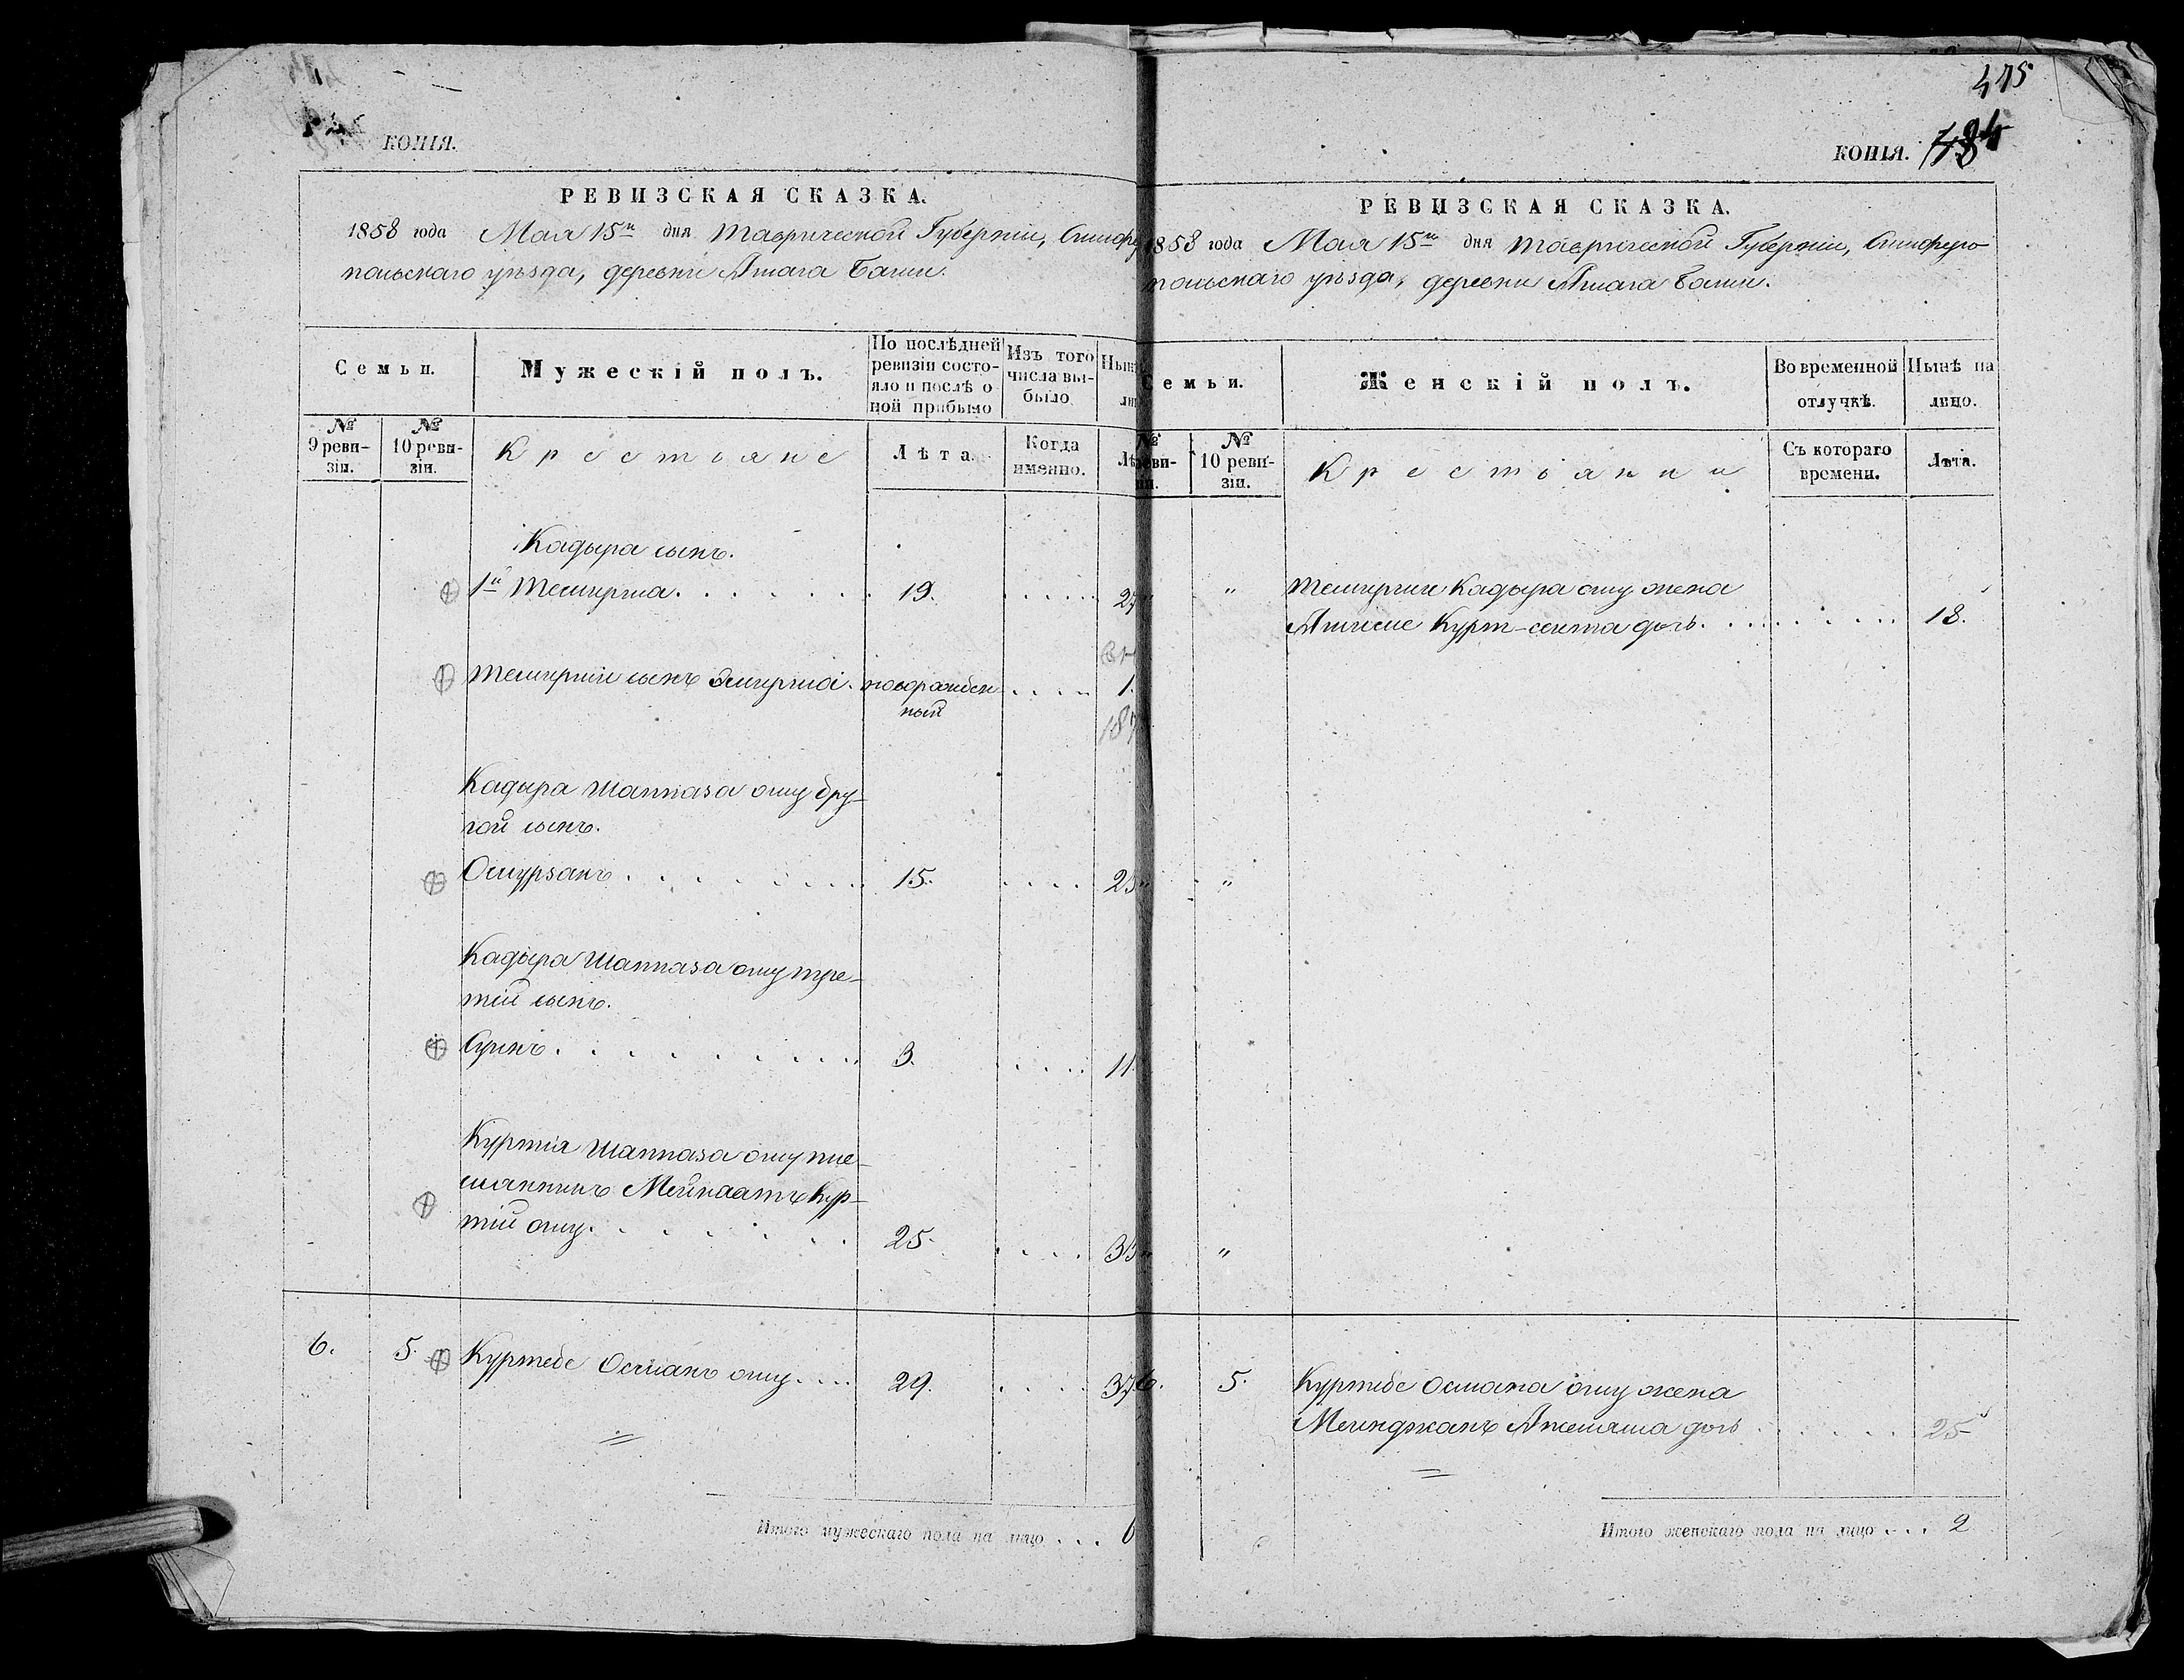 КОПІЯ.
РЕВИЗСКАЯ СКАЗКА.
1858 года Мая 15го дня Таврической Губерніи, Симферо
польскаго уѣзда, деревни Ашага Баши.
Семьи.
Мужескій полъ.
По послѣдней ревизіи состо-
яло и послѣ о
ной прибыло
Изъ того
числа вы-
было
Нын
ли
№
9 реви-
зіи.
№
10 реви-
зіи.
Крестьяне
Лѣта.
Когда
именно.
Лѣ
Кадыра сынъ.
1й Темирша. 19. 27
Темирши сынъ Эмирша. новорожден
ный
1.
187
Кадыра Шапназа оглу дру-
гой сынъ.
Омурзакъ 15. 23
Кадыра Шапназа оглу тре-
тій сынъ.
3. 11.
Куртія Шапназа оглу пле-
мянникъ Мейнаатъ Кур-
тій оглу. 25. 33
6. 5. Куртебе Османъ оглу 29. 37
Итого мужескаго пола на лицо 6
475
КОПІЯ.
РЕВИЗСКАЯ СКАЗКА.
1858 года Мая 15го дня Таврической Губерніи, Симферо
польскаго уѣзда, деревни Ашага Баши.
Семьи.
Женскій полъ.
Во временной
отлучкѣ.
Нынѣ на
лицо.
№
реви-
зіи.
№
10 реви-
зіи.
Крестьянки
Съ котораго
времени.
Лѣта.
" " Темирши Кадыра оглу жена
Курт-сеита дочь. 18.
" "
" "
6. 5. Куртебе Османа оглу жена
дочь 25
Итого женскаго пола на лицо 2